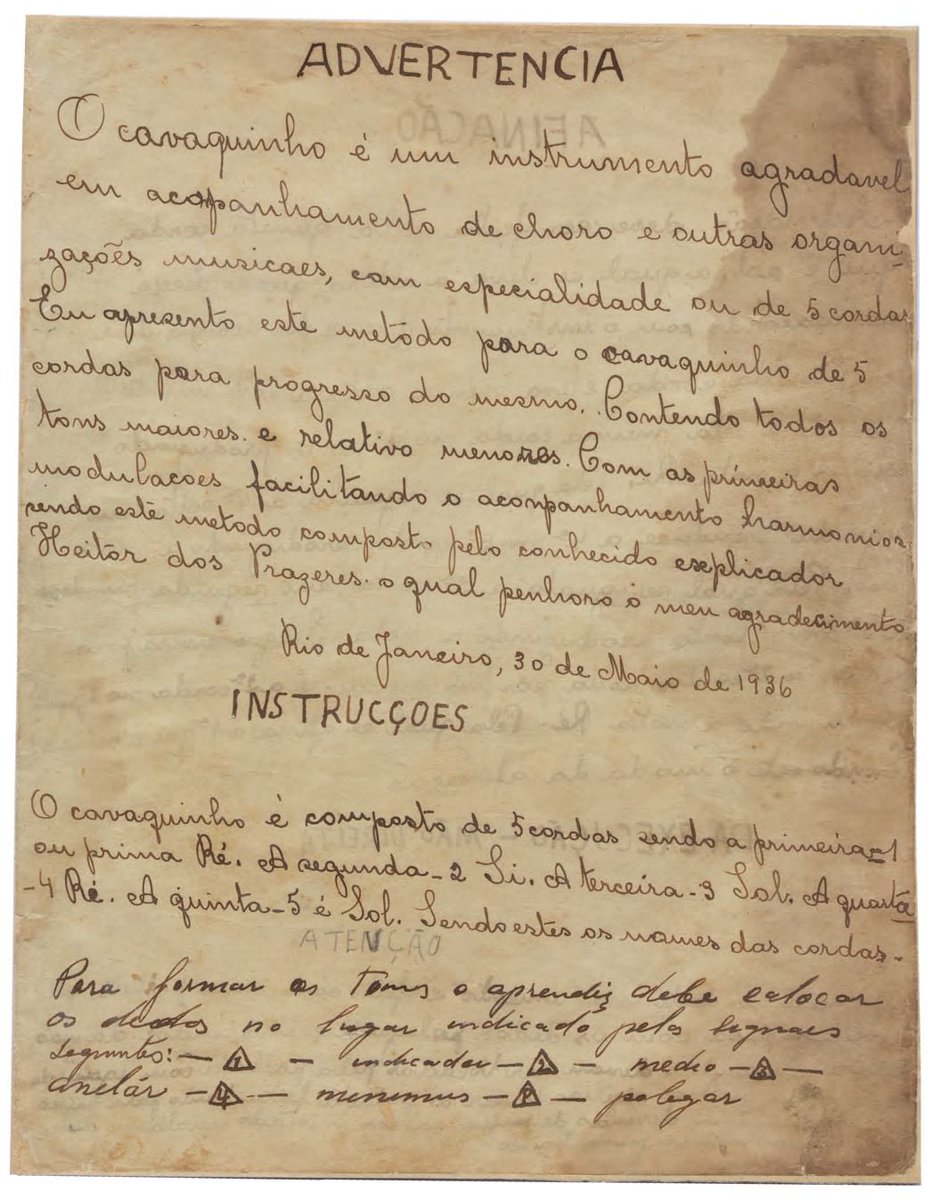 ADVERTENCIA
O cavaquinho é um instrumento agradavel
em acopanhamento de choro e outras organi-
zações musicaes, com especialidade ou de 5 cordas
Eu apresento este metodo para o cavaquinho de 5
cordas para progresso do mesmo. Contendo todos os
tons maiores e relativo menores. Com as primeiras
modulacoes facilitando o acompanhamento harmonios
sendo este metodo composto pelo conhecido explicador
Heitor dos Prazeres. o qual penhoro o meu agradecimento
Rio de Janeiro, 30 de Maio de 1936
INSTRUCÇOES
O cavaquinho é composto de 5 cordas sendo a primeira=1
ou prima Ré. A segunda-2 Si. A terceira-3 Sol. A quarta
-4 Ré. A quinta-5 é Sol. Sendo estes os nomes das cordas-
ATENÇÃO
Para formar os tons o aprendiz debe calocar
os dedos no lugar indicado pelos signaes
seguintes: — 1 — indicador — 2 — medio — 3 —
anelár — 4 — menimus — P — polegar